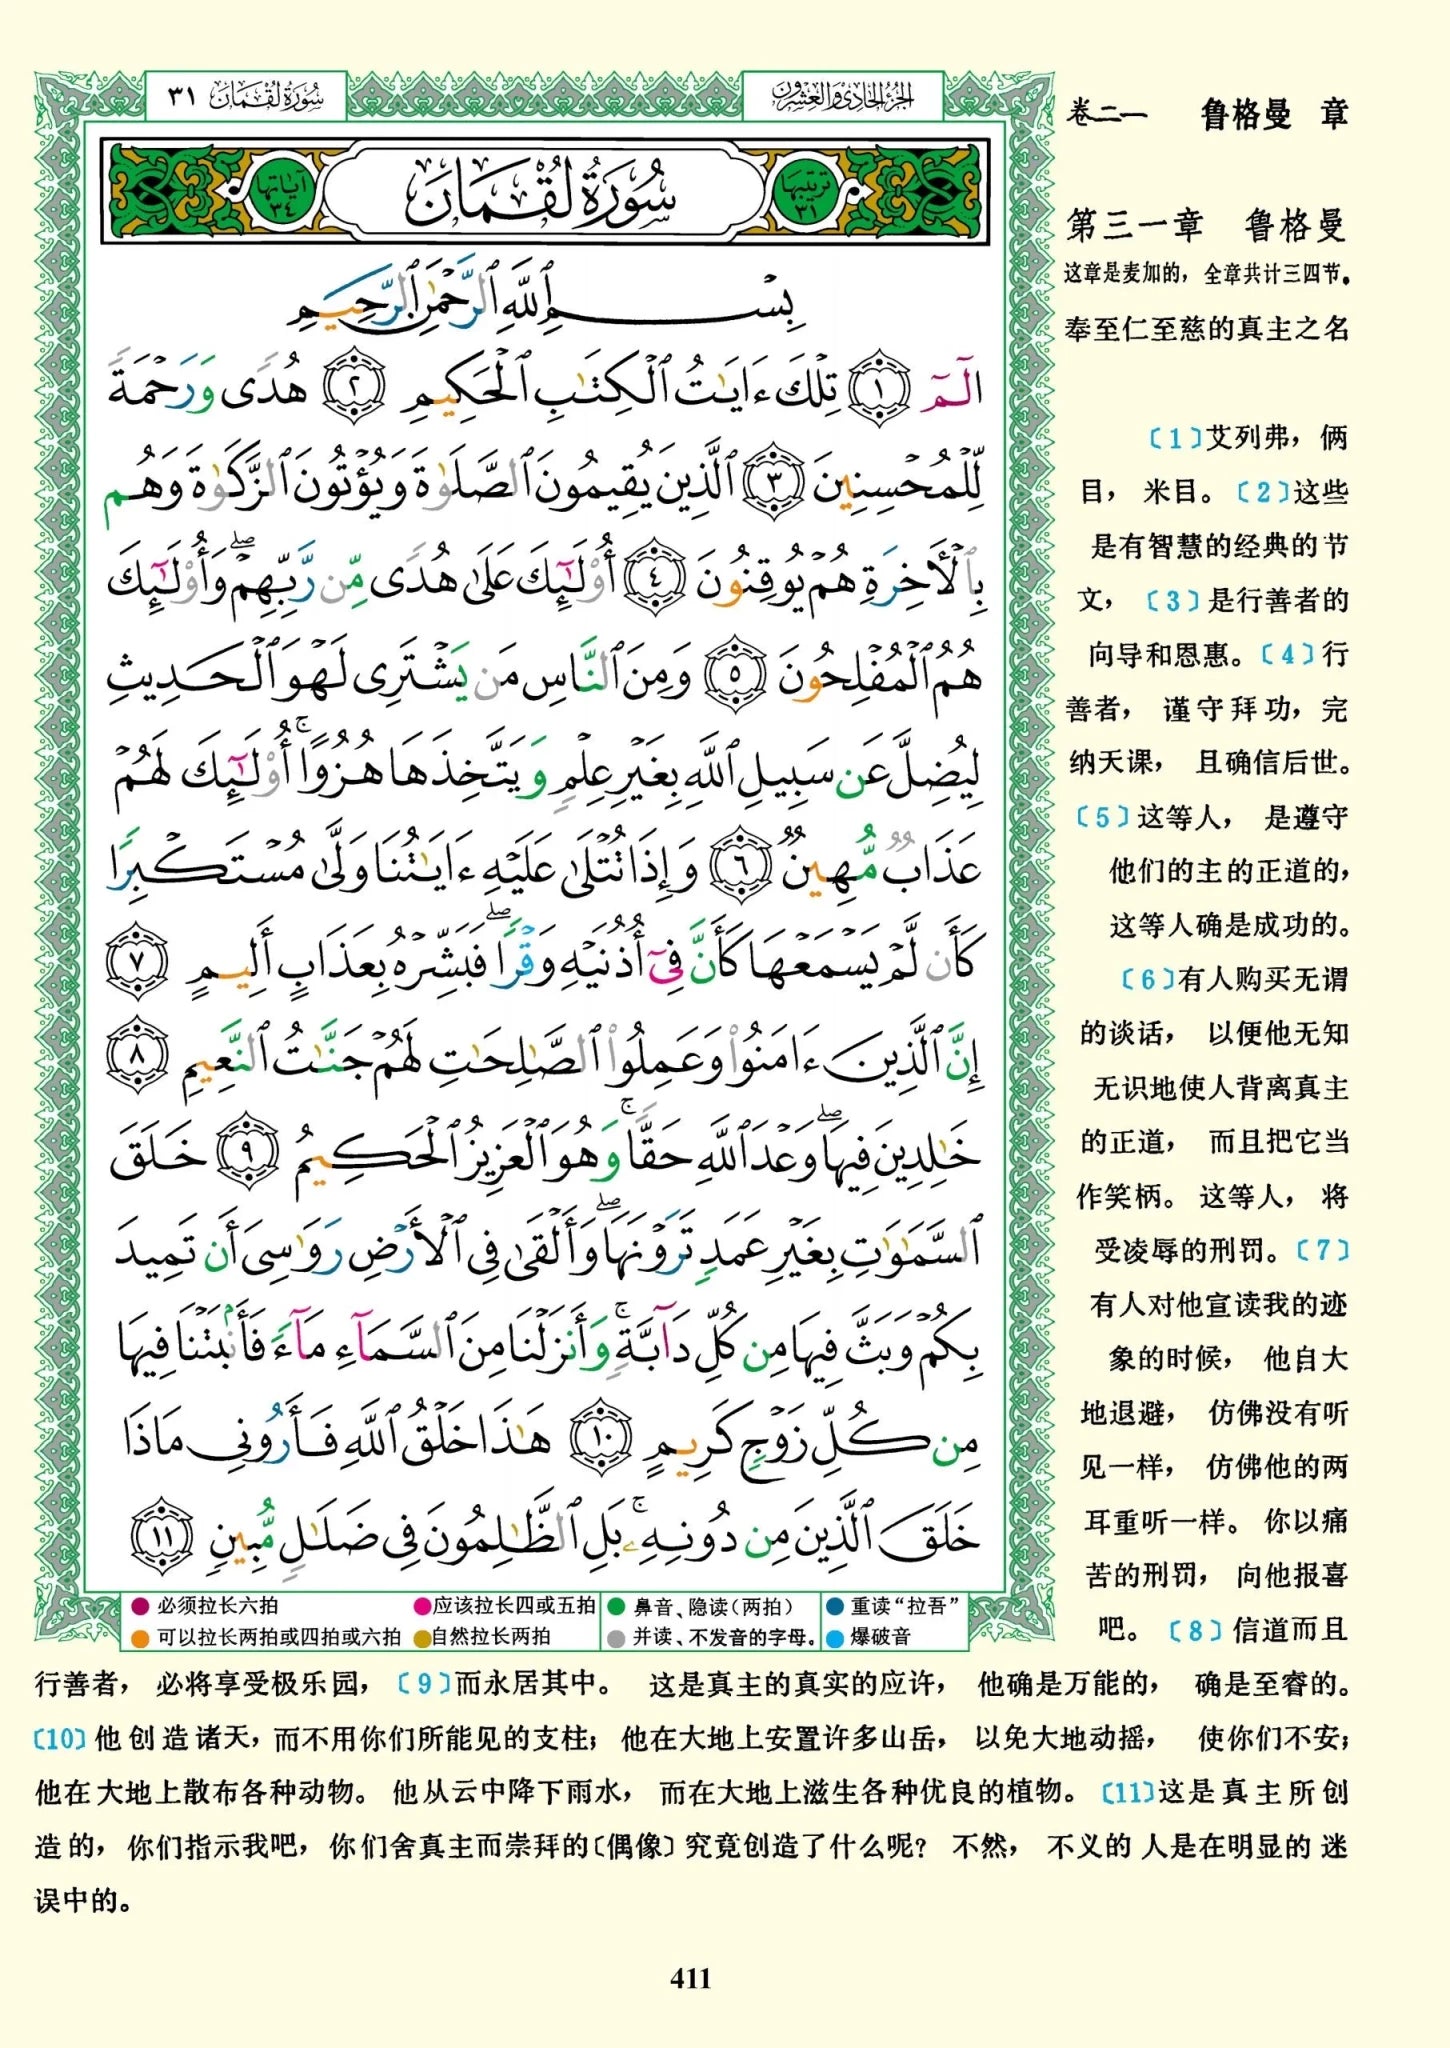 سُورَةُ لُقْمَان ٣١
الجُزْءُ الحَادِي وَالعِشْرُون
卷二一 鲁格曼 章
ترتيبها ٣١
سُورَةُ لُقْمَان
آياتها ٣٤
بِسْمِ ٱللَّهِ ٱلرَّحْمَٰنِ ٱلرَّحِيمِ
الٓمٓ ١ تِلْكَ ءَايَٰتُ ٱلْكِتَٰبِ ٱلْحَكِيمِ ٢ هُدًى وَرَحْمَةً
لِّلْمُحْسِنِينَ ٣ ٱلَّذِينَ يُقِيمُونَ ٱلصَّلَوٰةَ وَيُؤْتُونَ ٱلزَّكَوٰةَ وَهُم
بِٱلْأَخِرَةِ هُمْ يُوقِنُونَ ٤ أُوْلَٰٓئِكَ عَلَىٰ هُدًى مِّن رَّبِّهِمْ ۖ وَأُوْلَٰٓئِكَ
هُمُ ٱلْمُفْلِحُونَ ٥ وَمِنَ ٱلنَّاسِ مَن يَشْتَرِى لَهْوَ ٱلْحَدِيثِ
لِيُضِلَّ عَن سَبِيلِ ٱللَّهِ بِغَيْرِ عِلْمٍ وَيَتَّخِذَهَا هُزُوًا ۚ أُوْلَٰٓئِكَ لَهُمْ
عَذَابٌ مُّهِينٌ ٦ وَإِذَا تُتْلَىٰ عَلَيْهِ ءَايَٰتُنَا وَلَّىٰ مُسْتَكْبِرًا
كَأَن لَّمْ يَسْمَعْهَا كَأَنَّ فِىٓ أُذُنَيْهِ وَقْرًا ۖ فَبَشِّرْهُ بِعَذَابٍ أَلِيمٍ ٧
إِنَّ ٱلَّذِينَ ءَامَنُوا۟ وَعَمِلُوا۟ ٱلصَّٰلِحَٰتِ لَهُمْ جَنَّٰتُ ٱلنَّعِيمِ ٨
خَٰلِدِينَ فِيهَا ۖ وَعْدَ ٱللَّهِ حَقًّا ۚ وَهُوَ ٱلْعَزِيزُ ٱلْحَكِيمُ ٩ خَلَقَ
ٱلسَّمَٰوَٰتِ بِغَيْرِ عَمَدٍ تَرَوْنَهَا ۖ وَأَلْقَىٰ فِى ٱلْأَرْضِ رَوَٰسِىَ أَن تَمِيدَ
بِكُمْ وَبَثَّ فِيهَا مِن كُلِّ دَآبَّةٍ ۚ وَأَنزَلْنَا مِنَ ٱلسَّمَآءِ مَآءً فَأَنۢبَتْنَا فِيهَا
مِن كُلِّ زَوْجٍ كَرِيمٍ ١٠ هَٰذَا خَلْقُ ٱللَّهِ فَأَرُونِى مَاذَا
خَلَقَ ٱلَّذِينَ مِن دُونِهِۦ ۚ بَلِ ٱلظَّٰلِمُونَ فِى ضَلَٰلٍ مُّبِينٍ ١١
必须拉长六拍 应该拉长四或五拍 鼻音、隐读(两拍) 重读“拉吾”
可以拉长两拍或四拍或六拍 自然拉长两拍 并读、不发音的字母。 爆破音
第三一章 鲁格曼
这章是麦加的，全章共计三四节。
奉至仁至慈的真主之名
〔1〕艾列弗，俩
目，米目。〔2〕这些
是有智慧的经典的节
文，〔3〕是行善者的
向导和恩惠。〔4〕行
善者，谨守拜功，完
纳天课，且确信后世。
〔5〕这等人，是遵守
他们的主的正道的，
这等人确是成功的。
〔6〕有人购买无谓
的谈话，以便他无知
无识地使人背离真主
的正道，而且把它当
作笑柄。这等人，将
受凌辱的刑罚。〔7〕
有人对他宣读我的迹
象的时候，他自大
地退避，仿佛没有听
见一样，仿佛他的两
耳重听一样。你以痛
苦的刑罚，向他报喜
吧。〔8〕信道而且
行善者，必将享受极乐园，〔9〕而永居其中。这是真主的真实的应许，他确是万能的，确是至睿的。
〔10〕他创造诸天，而不用你们所能见的支柱；他在大地上安置许多山岳，以免大地动摇，使你们不安；
他在大地上散布各种动物。他从云中降下雨水，而在大地上滋生各种优良的植物。〔11〕这是真主所创
造的，你们指示我吧，你们舍真主而崇拜的〔偶像〕究竟创造了什么呢？不然，不义的人是在明显的迷
误中的。
411